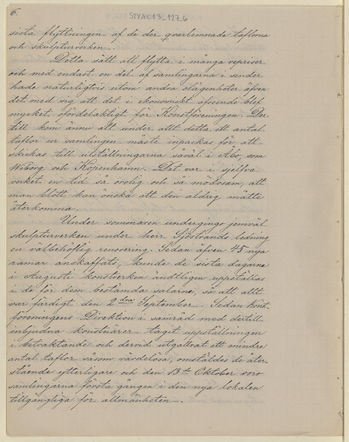 6.
STYAC13_127_6
sista flyttningen af de der qvarlemnade taflorna
och skulpturverken.
Detta sätt att flytta i många repriser
och med endast en del af samlingarna i sender
hade naturligtvis utom andra olägenheter äfven
det med sig att det i ekonomiskt afseende blef
mycket ofördelaktigt för Konstföreningen. Der
till kom ännu att under allt detta ett antal
taflor ur samlingen måste inpackas för att
skickas till utställningarna såväl i Åbo, som
Wiborg och Köpenhamn. Det var i sjelfva
verket en tid så orolig och så mödosam, att
man blott kan önska att den aldrig måtte
återkomma.
Under sommaren undergingo jemväl
skulpturverken under herr Sjöstrands ledning
en välbehöflig renovering. Sedan äfven 45 nya
ramar anskaffats, kunde de sista dagarne
i Augusti konstverken ändtligen uppställas
i de för dem bestämda salarne, så att allt
var färdigt den 2dra September. Sedan Konst
föreningens Direktion i samråd med dertill
inbjudna konstnärer tagit uppställningen
i betraktande och dervid utgallrat ett mindre
antal taflor såsom värdelösa, omställdes de åter-
stående ytterligare och den 13de Oktober voro
samlingarna första gången i den nya lokalen
tillgängliga för allmänheten.